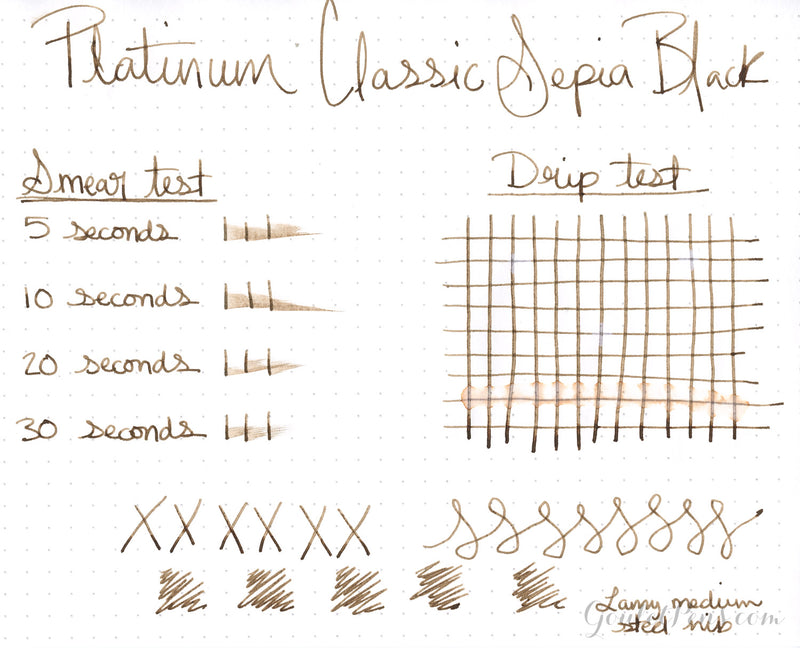 Platinum Classic Sepia Black
Smear test
Drip test
5 seconds
10 seconds
20 seconds
30 seconds
XXXXXX
Lamy medium
steel nib
GouletPens.com